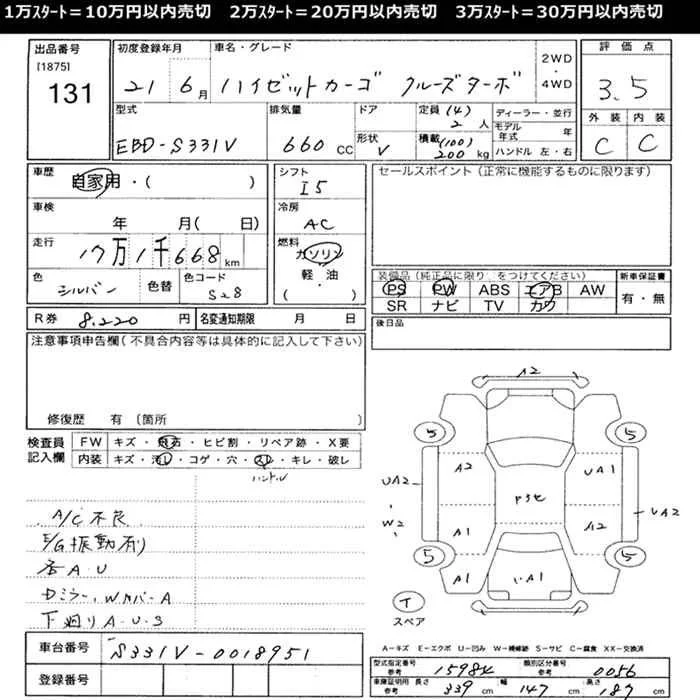 1万ｽﾀｰﾄ＝10万円以内売切　2万ｽﾀｰﾄ＝20万円以内売切　3万ｽﾀｰﾄ＝30万円以内売切
出品番号
[1875]
131
初度登録年月
21 6月
車名・グレード
ハイゼットカーゴ クルーズターボ
2WD・4WD
評価点
3.5
外装 内装
C C
型式
EBD-S331V
排気量
660 CC
ドア
形状
V
定員 (4)
2 人
積載 (100)
200 kg
ディーラー・並行
モデル年式 年
ハンドル 左・右
車歴
自家用・( )
シフト
I5
セールスポイント(正常に機能するものに限ります)
車検
年 月( 日)
冷房
AC
走行
17万1千668km
燃料
ガソリン
軽・油
( )
色
シルバー 色替
色コード
S28
装備品(純正品に限り○をつけてください)
PS PW ABS エアB AW
SR ナビ TV カワ
新車保証書
有・無
R券 8,220 円
名変通知期限 月 日
後日品
注意事項申告欄(不具合内容等は具体的に記入して下さい)
修復歴 有 [箇所
検査員記入欄
FW キズ・飛石・ヒビ割・リペア跡・X要
内装 キズ・汚レ・コゲ・穴・スレ・キレ・破レ
ハンドル
A/C不良
E/G振動有り
各A.U
ドミラー、WカバーA
下廻りA.U.S
車台番号
S331V-0018951
登録番号
A2
5 5
A2 UA1
UA2
W2
UA2
A1 A2
5 5
A1 A1
T
スペア
A－キズ E－エクボ U－凹み W－補修跡 S－サビ C－腐食 XX－交換済
型式指定番号
参考
15984
類別区分番号
参考
0056
車庫証明用 長さ
参考 339 cm
幅 147 cm
高さ 187 cm